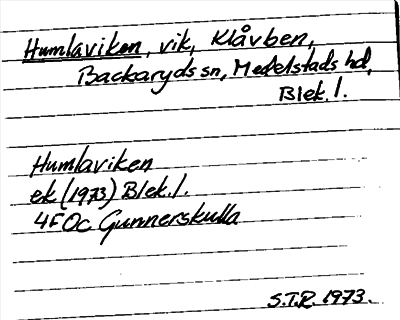 Humlaviken, vik, Klåvben,
Backaryds sn, Medelstads hd,
Blek. l.
Humlaviken
ek (1973) Blek. l.
4F Oc Gunnerskulla
S.T.R. 1973.